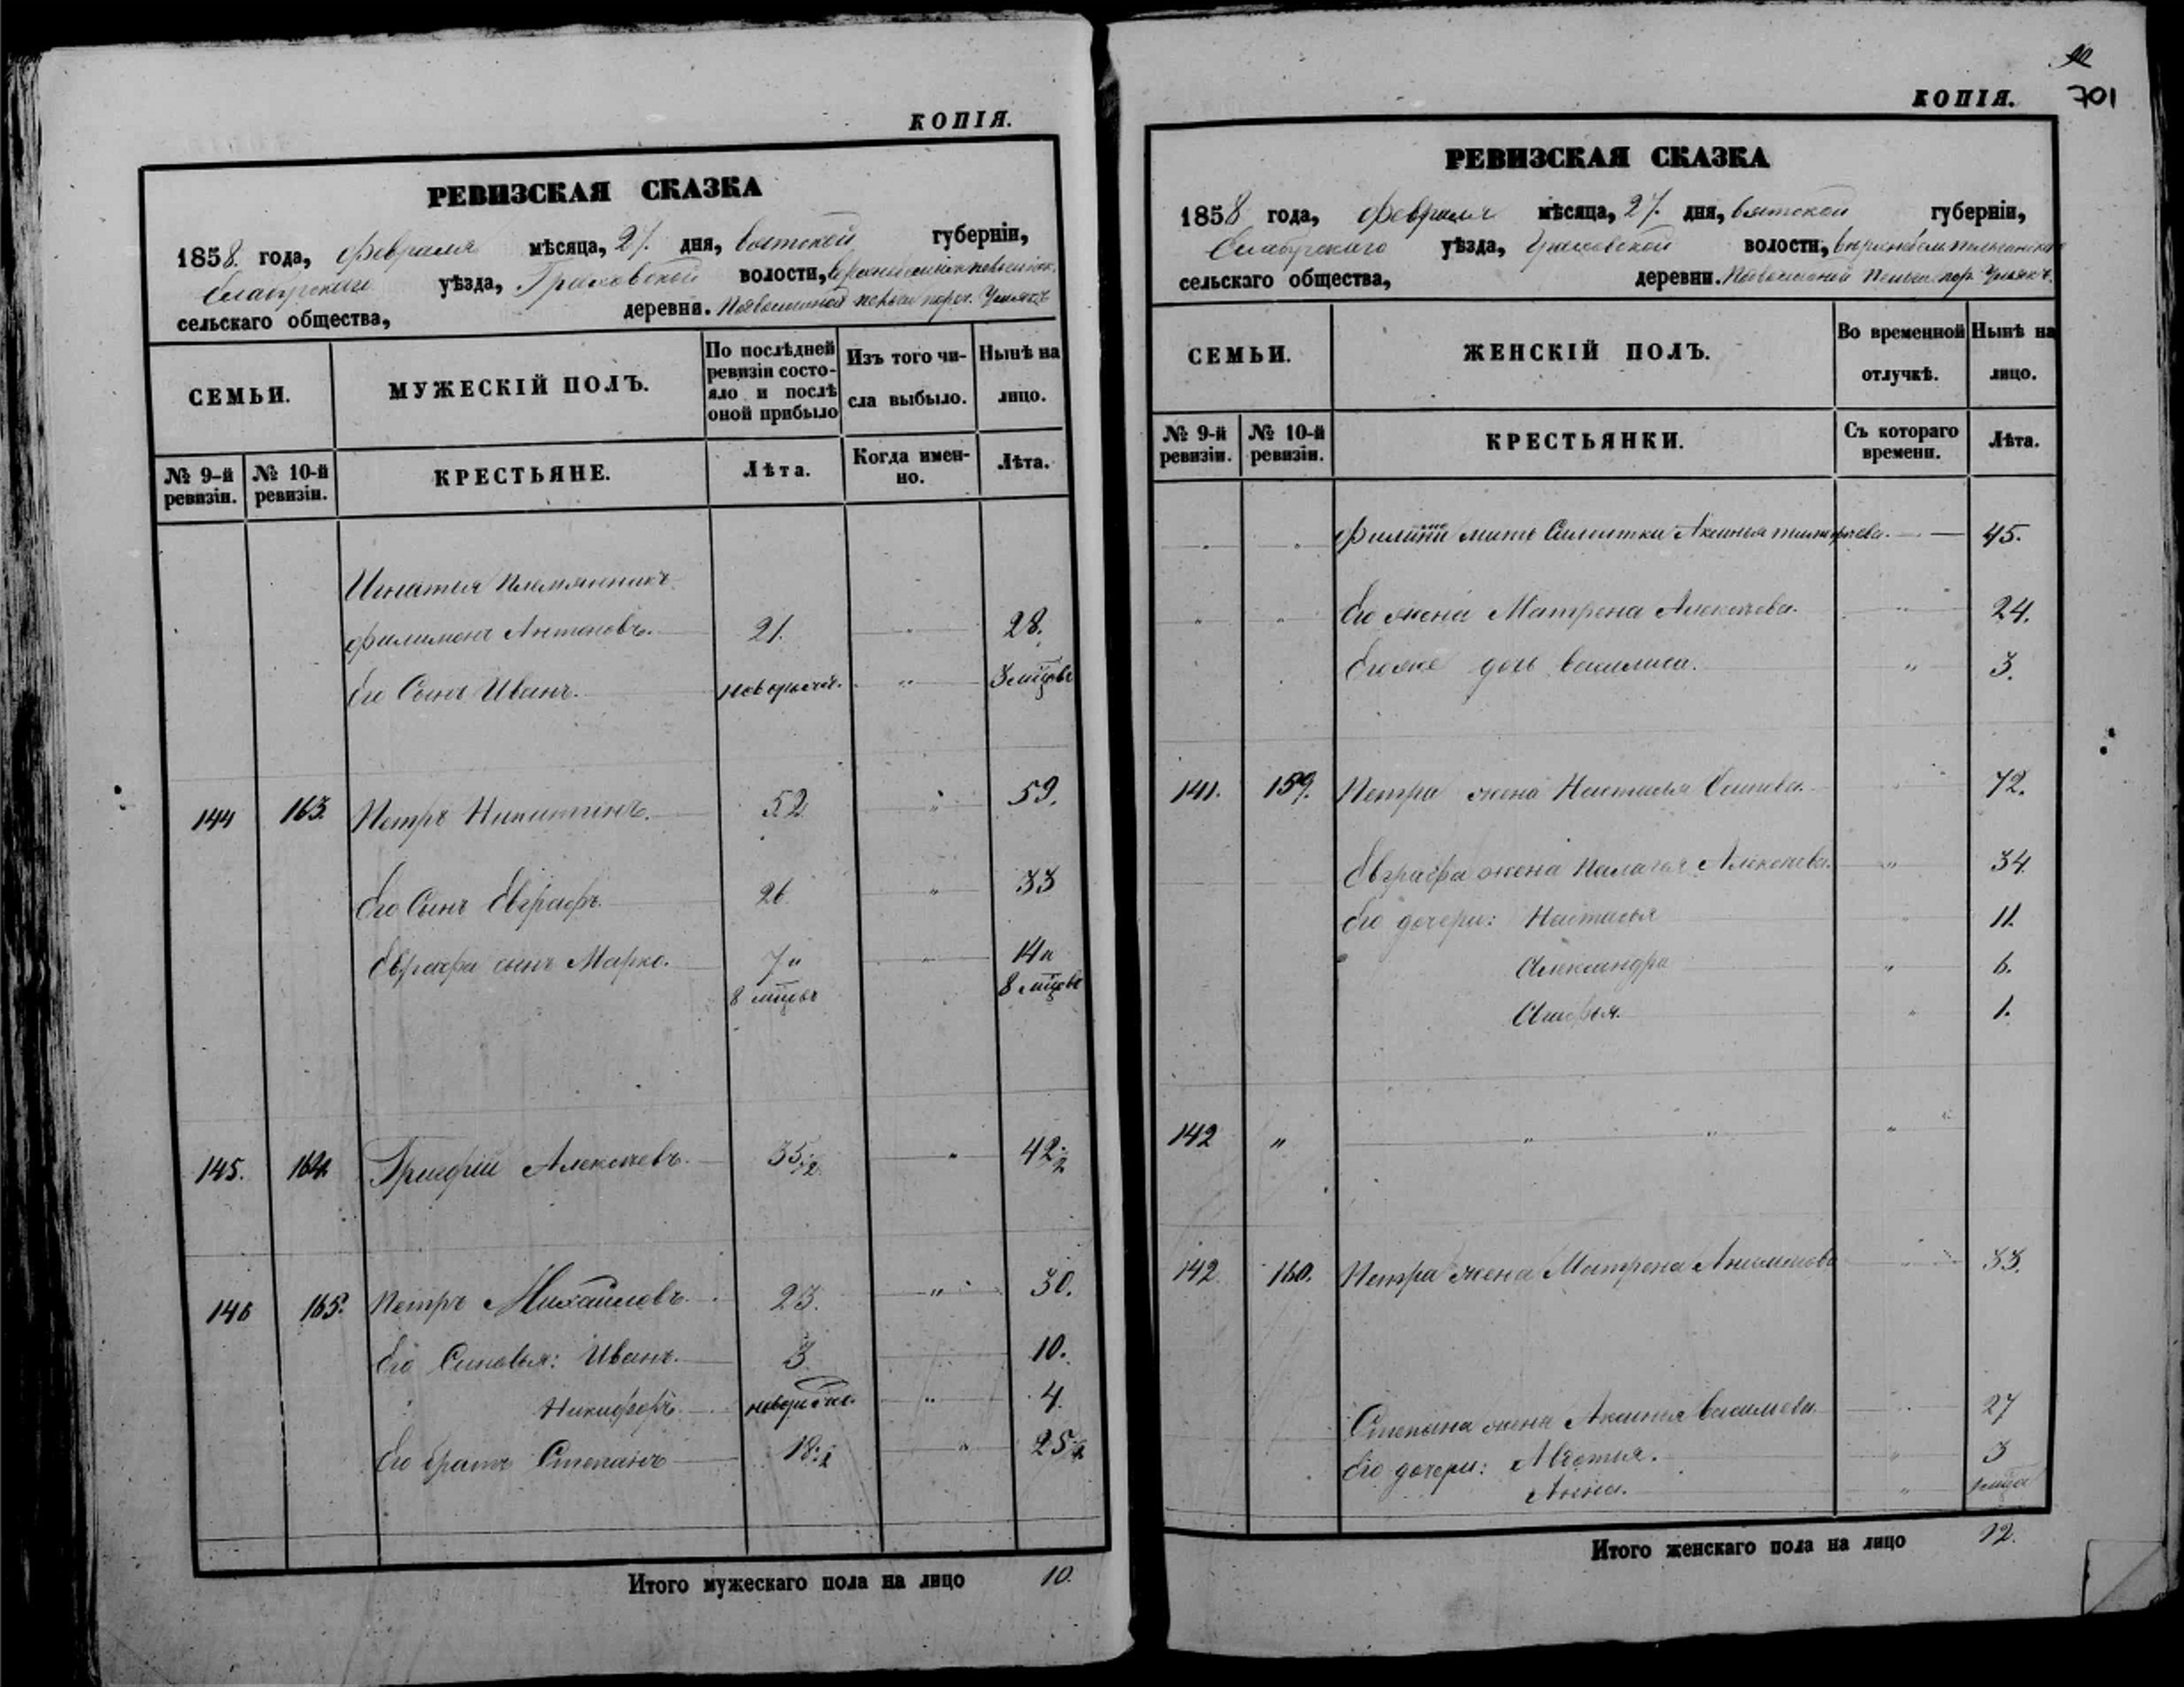 КОПІЯ.
РЕВИЗСКАЯ СКАЗКА
1858. года, февраля мѣсяца, 27. дня, вятской губерніи,
Елабужскаго уѣзда, Граховской волости,
сельскаго общества, деревни.
СЕМЬИ.
МУЖЕСКІЙ ПОЛЪ.
По послѣдней ревизіи состояло и послѣ оной прибыло
Изъ того числа выбыло.
Нынѣ на лицо.
№ 9-й ревизіи.
№ 10-й ревизіи.
КРЕСТЬЯНЕ.
Лѣта.
Когда именно.
Лѣта.
Игнатья племянникъ
Филимонъ Антоновъ. 21. " 28.
Его Сынъ Иванъ. новорожд. " 3 мцовъ
144 163. Петръ Никитинъ. 52. " 59.
Его Сынъ Евграфъ. 26. " 33
Евграфа сынъ Марко. 7 " " 14 "
8 мцовъ 8 мцовъ
145. 164. Григорій Алексѣевъ. 35 ½ " 42 ½
146 165. Петръ Михайловъ. 23. " 30.
Его Сыновья: Иванъ. 3. 10.
Никифоръ. новорожд. " 4.
Его братъ Степанъ 18 ½ " 25 ½
Итого мужескаго пола на лицо 10.
701
КОПІЯ.
РЕВИЗСКАЯ СКАЗКА
1858 года, февраля мѣсяца, 27. дня, вятской губерніи,
Елабужскаго уѣзда, Граховской волости,
сельскаго общества, деревни.
СЕМЬИ.
ЖЕНСКІЙ ПОЛЪ.
Во временной отлучкѣ.
Нынѣ на лицо.
№ 9-й ревизіи.
№ 10-й ревизіи.
КРЕСТЬЯНКИ.
Съ котораго времени.
Лѣта.
" " мать Солдатка Аксинья 45.
" " Его жена Матрена Алексѣева. " 24.
Егоже дочь Василиса. " 3.
141. 159. Петра жена Настасья 72.
Евграфа жена Палагея Алексѣева. " 34.
Его дочери: Настасья " 11.
Александра " 6.
" 1.
142 " " " "
142 160. Петра жена Матрена 33.
Степана жена Аксинья Васильева 27
Его дочери: Авдотья. " 3
Анна. "
Итого женскаго пола на лицо 12.